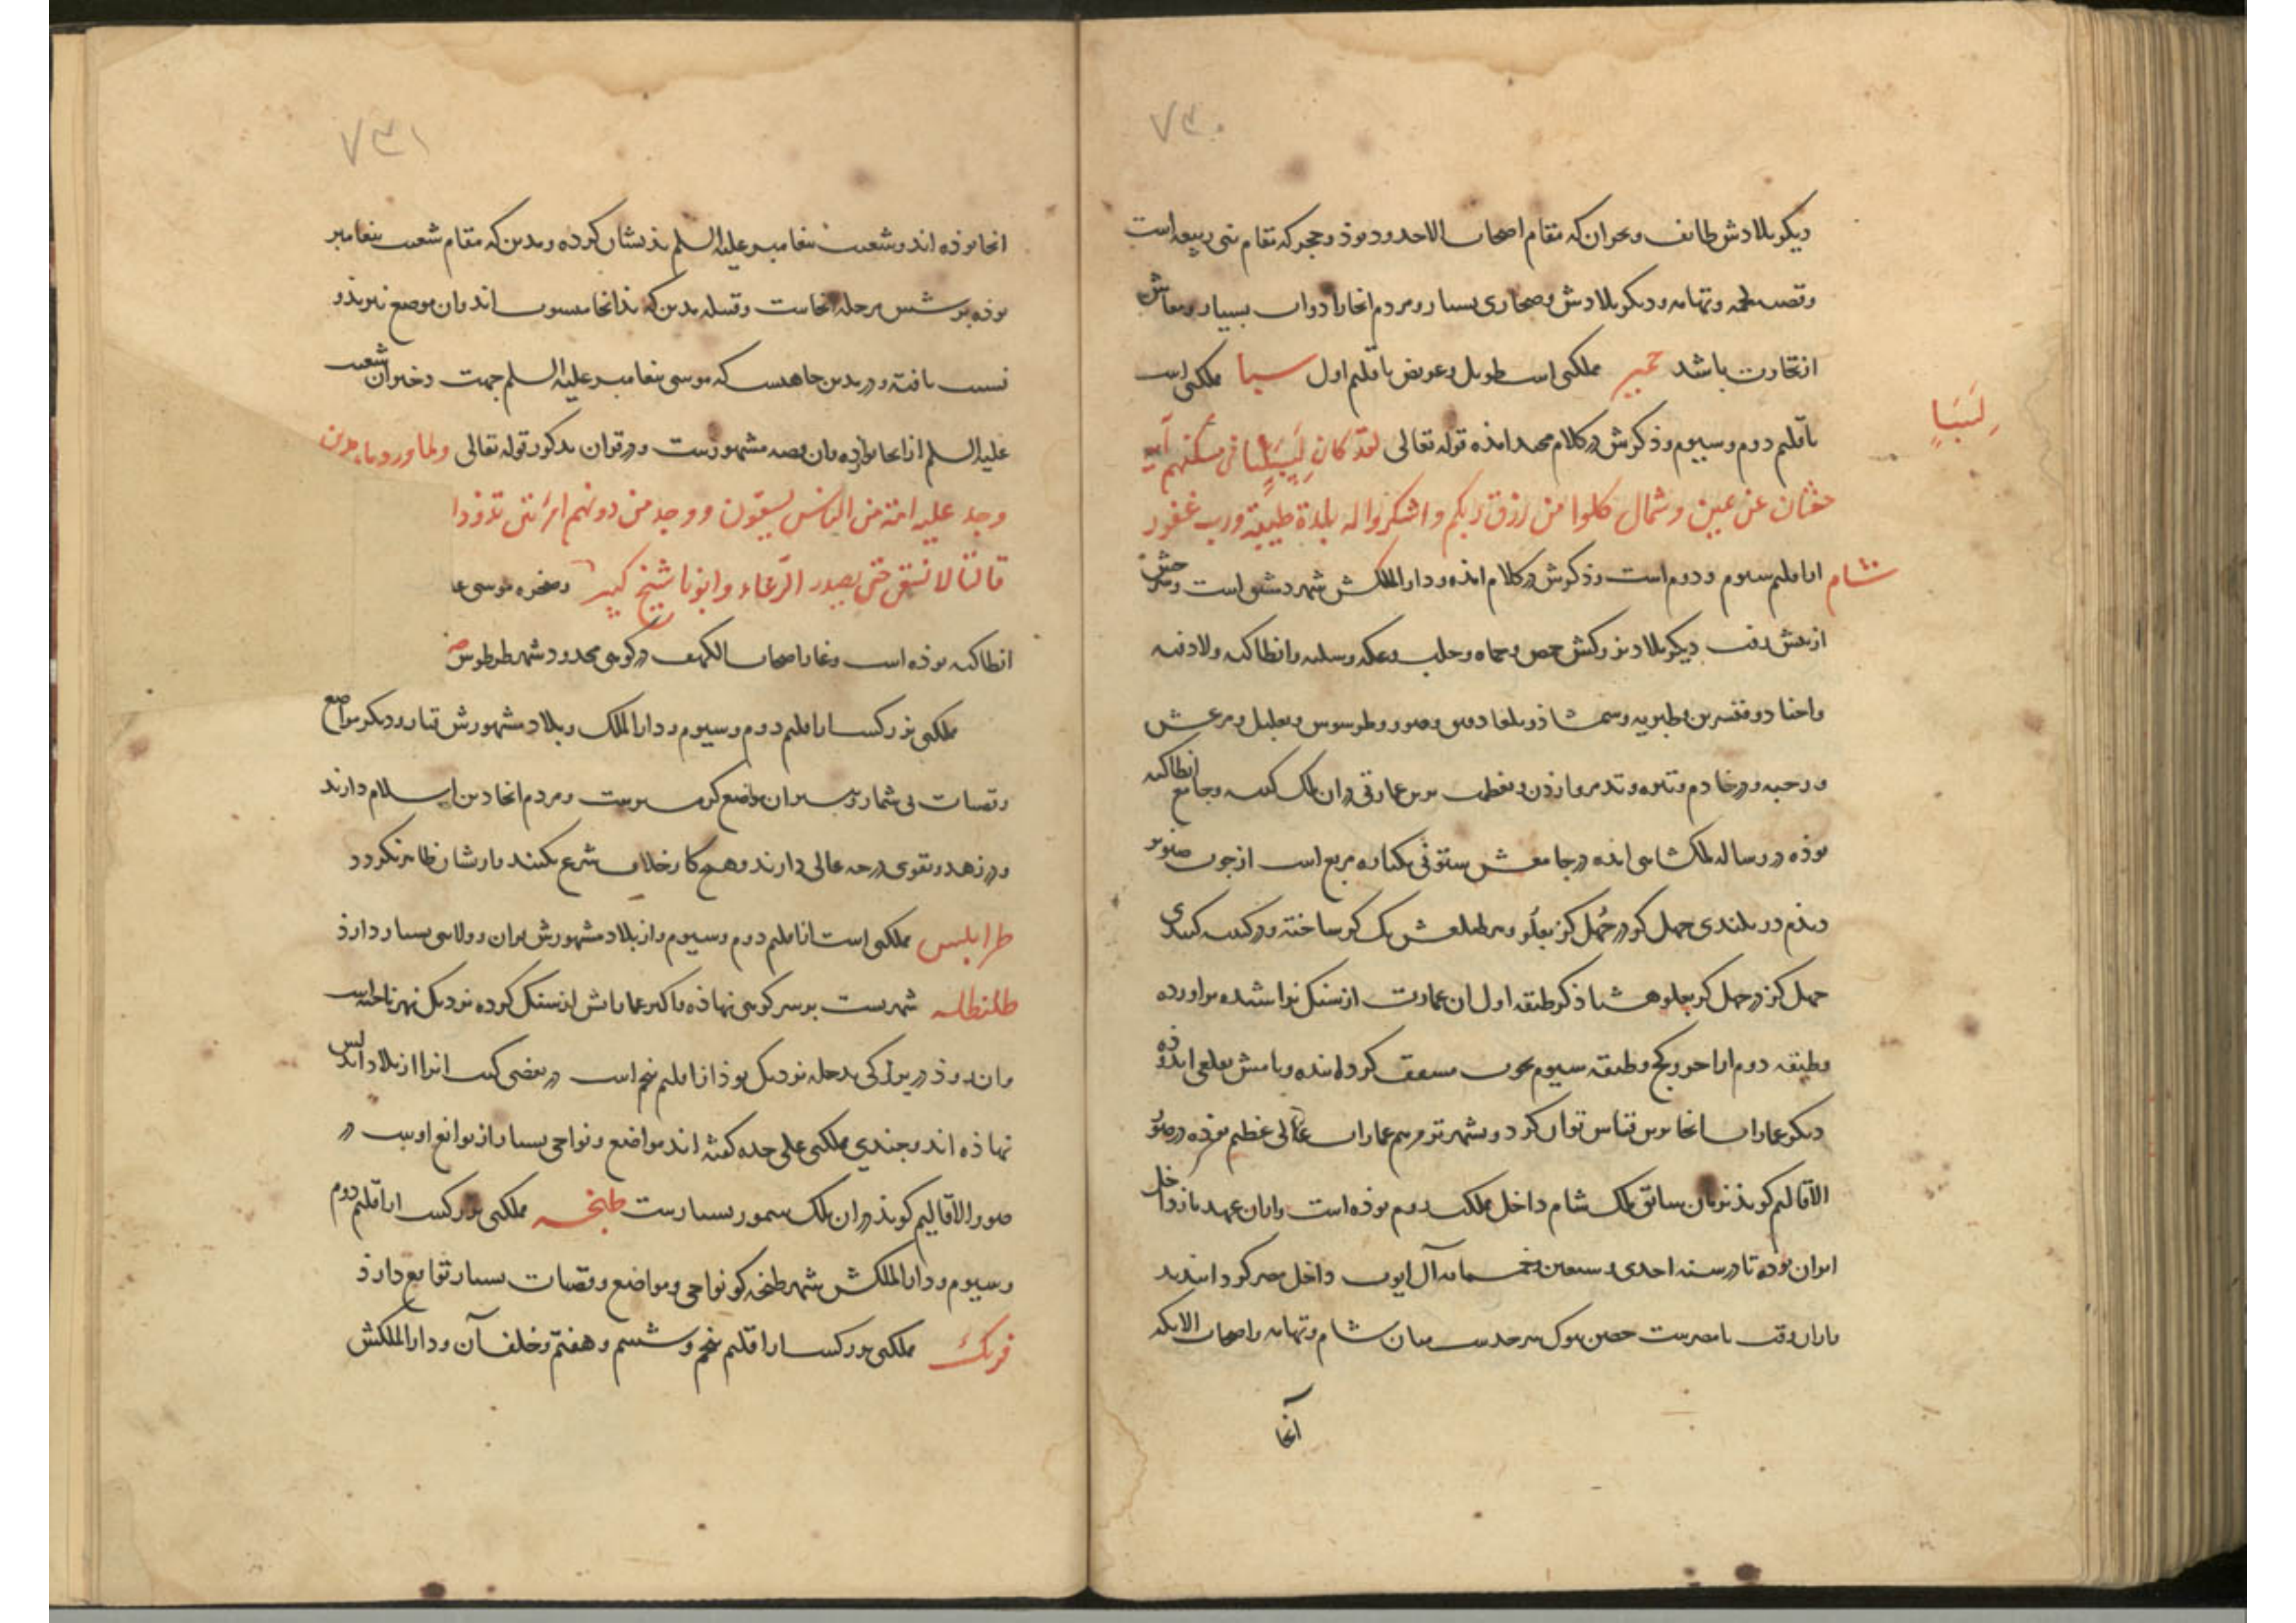 ۷۳۰
دیکر بلادش طائف و نجران که مقام اصحاب الاخدود بوذ و حجر که مقام بنی ربیعه است
و قصب طحمه و تهامه و دیکر بلادش و صحاری بسیار و مردم انجا را دواب بسیار و معاش
از تجارت باشد حمیر ملکی است طویل و عریض باقلیم اول سبا ملکی است
باقلیم دوم و سیوم و ذکرش در کلام مجید امذه قوله تعالی لقد کان لسبا فی مسکنهم آیة
لِسَبَاٍ
جنتان عن یمین و شمال کلوا من رزق ربکم و اشکروا له بلدة طیبة و رب غفور
شام از اقلیم سیوم و دوم است و ذکرش در کلام امذه و دار الملکش شهر دمشق است
از پیش رفت دیکر بلاد بزرکش حمص و حماه و حلب و عکه و سلمیه و انطاکیه و لادقیه
و اجنادو قنسرین و طبریه و سمشاذ و بلقا و صور و طرسوس و بعلبک و مرعش
و رحبه و تدمر و اردن و معظم ترین عمارتی در ان ملک کنیسه و جامع انطاکیه
بوذه در رساله ملکشاهی امذه در جامعش ستونی یکباره مربع است از چوب صنوبر
دیذم در بلندی چهل کز در چهل کز بهلو و بر مطلعش یک کز ساخته و در کنیسه کنبدی
چهل کز در چهل کز بهلو هشتاذ کز طبقه اول ان عمارت از سنک تراشیده براورده
و طبقه دوم از اجر و کج و طبقه سیوم بچوب مسقف کردانیده و بامش بقلعی اندوذه
دیکر عمارات انجا برین قیاس توان کرد و بشهر تدمر هم عمارات عالی عظیم بوذه در صور
الاقالیم کویذ بزمان سابق ملک شام داخل مملکت روم بوذه است و از ان عهد باز داخل
ایران بوده تا در سنه احدی و سبعین و خمسمایه آل ایوب داخل مصر کردانیدند
باز ان وقت با مصرست حصن تبوک سرحدست میان شام و تهامه و اصحاب الایکه
آنجا
۷۳۱
انجا بوذه اند و شعیب بیغامبر علیه السلم بذیشان کرده و مدین که مقام شعیب بیغامبر
بوذه بر شش مرحله انجاست و قبیله مدین که بذانجا منسوب اند و ان موضع نیز بذو
نسبت یافته و در مدین چاهیست که موسی بیغامبر علیه السلم جهت دختران شعیب
علیه السلم از انجا اب داده و ان قصه مشهورست و در قران مذکور قوله تعالی و لما ورد ماء مدین
وجد علیه امة من الناس یسقون و وجد من دونهم امرأتین تذودا
قالتا لا نسقی حتی یصدر الرعاء و ابونا شیخ کبیر و صخره موسی عا
انطاکیه بوذه است و غار اصحاب الکهف در کوهی بحدود شهر طرطوس
ملکی بزرکست از اقلیم دوم و سیوم و دار الملک و بلاد مشهورش و دیکر مواضع
و قصبات بی شمار و بسر ان مواضع کرمسیرست و مردم انجا دین اسلام دارند
و در زهد و تقوی درجه عالی دارند و هیج کار خلاف شرع نکنند و از شان ظاهر نکردد
طرابلس ملکی است از اقلیم دوم و سیوم و از بلاد مشهورش و ولایتی بسیار دارذ
طلیطله شهریست بر سر کوهی نهاذه و اکثر عماراتش از سنک کرده نزدیک نهر تاجه است
و ان روذ در بزرکی بدجله نزدیک بوذ از اقلیم بنجم است در بعضی کتب انرا از بلاد اندلس
نهاذه اند و جندی ملکی علی حده کفته اند مواضع و نواحی بسیار از توابع اوست در
صور الاقالیم کویذ در ان ملک سمور بسیارست طنجه ملکی بزرکست از اقلیم دوم
و سیوم و دار الملکش شهر طنجه کو نواحی و مواضع و قصبات بسیار توابع دارذ
فرنک ملکی بزرکست از اقلیم بنجم و ششم و هفتم و خلف آن و دار الملکش